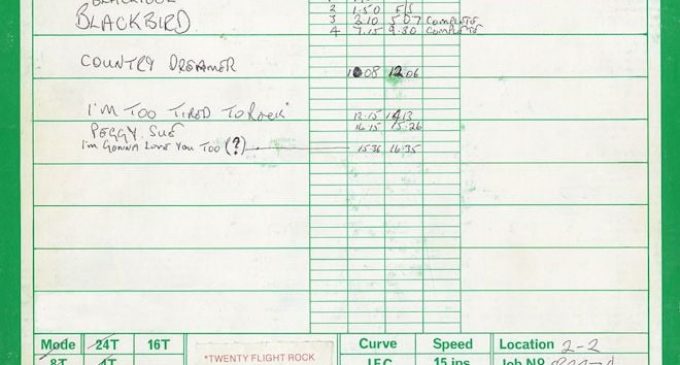 2 1.50 F/S
BLACKBIRD 3 3.10 5.07 COMPLETE
4 7.15 9.30 COMPLETE
COUNTRY DREAMER 10 08 12 06
I'M TOO TIRED TO ROCK' 12.15 14 13
PEGGY SUE 14 15 15 26
I'm Gonna Love You Too (?) 15 36 16 35
Mode 24T 16T Curve Speed Location 2-2
8T 4T *TWENTY FLIGHT ROCK IEC 15 ips Job Nº